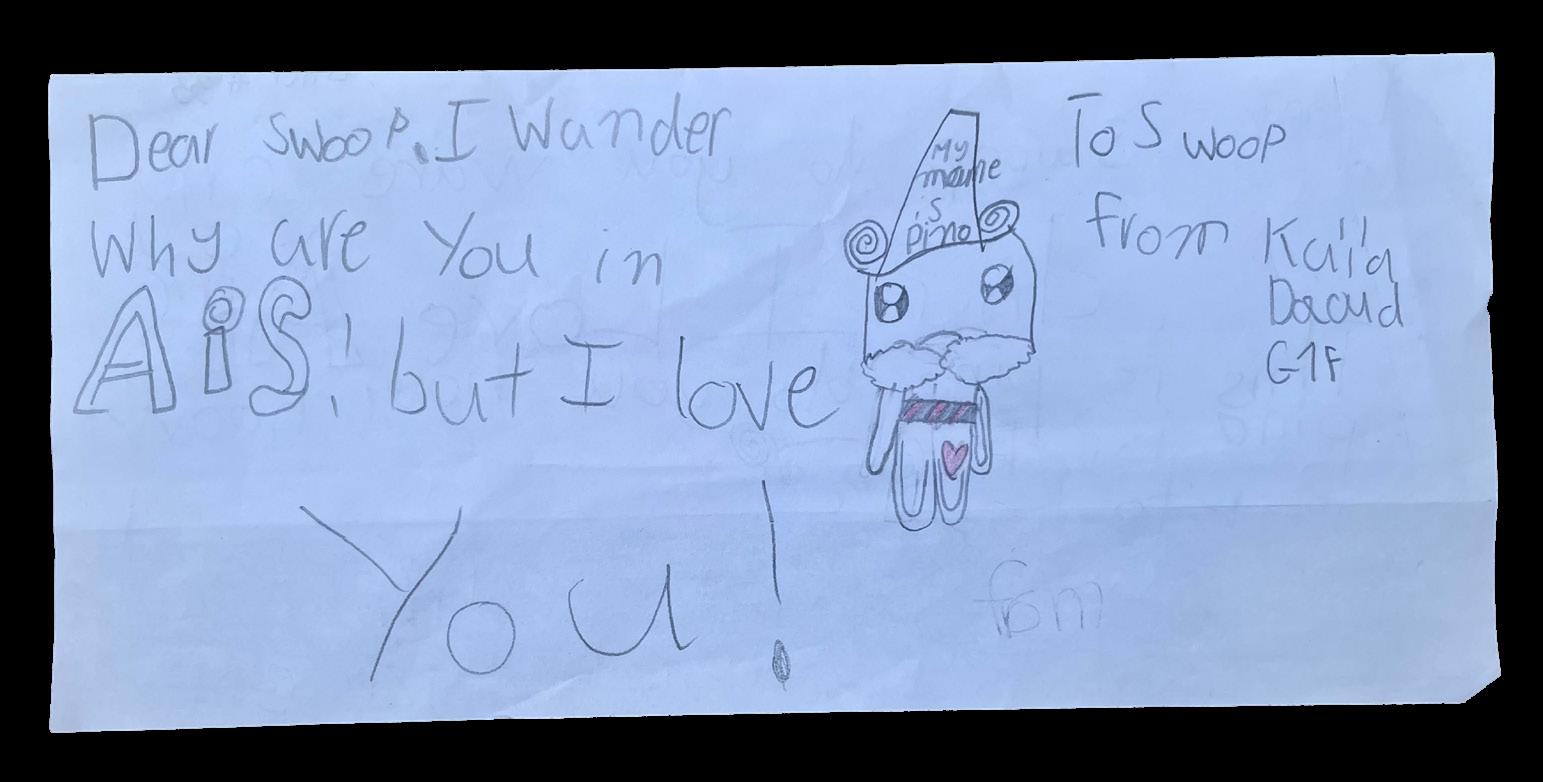 Dear Swoop. I Wander
Why are You in
AiS! but I love
You!
My
name
is
pino
To Swoop
from Kaila
Daoud
G1F
from